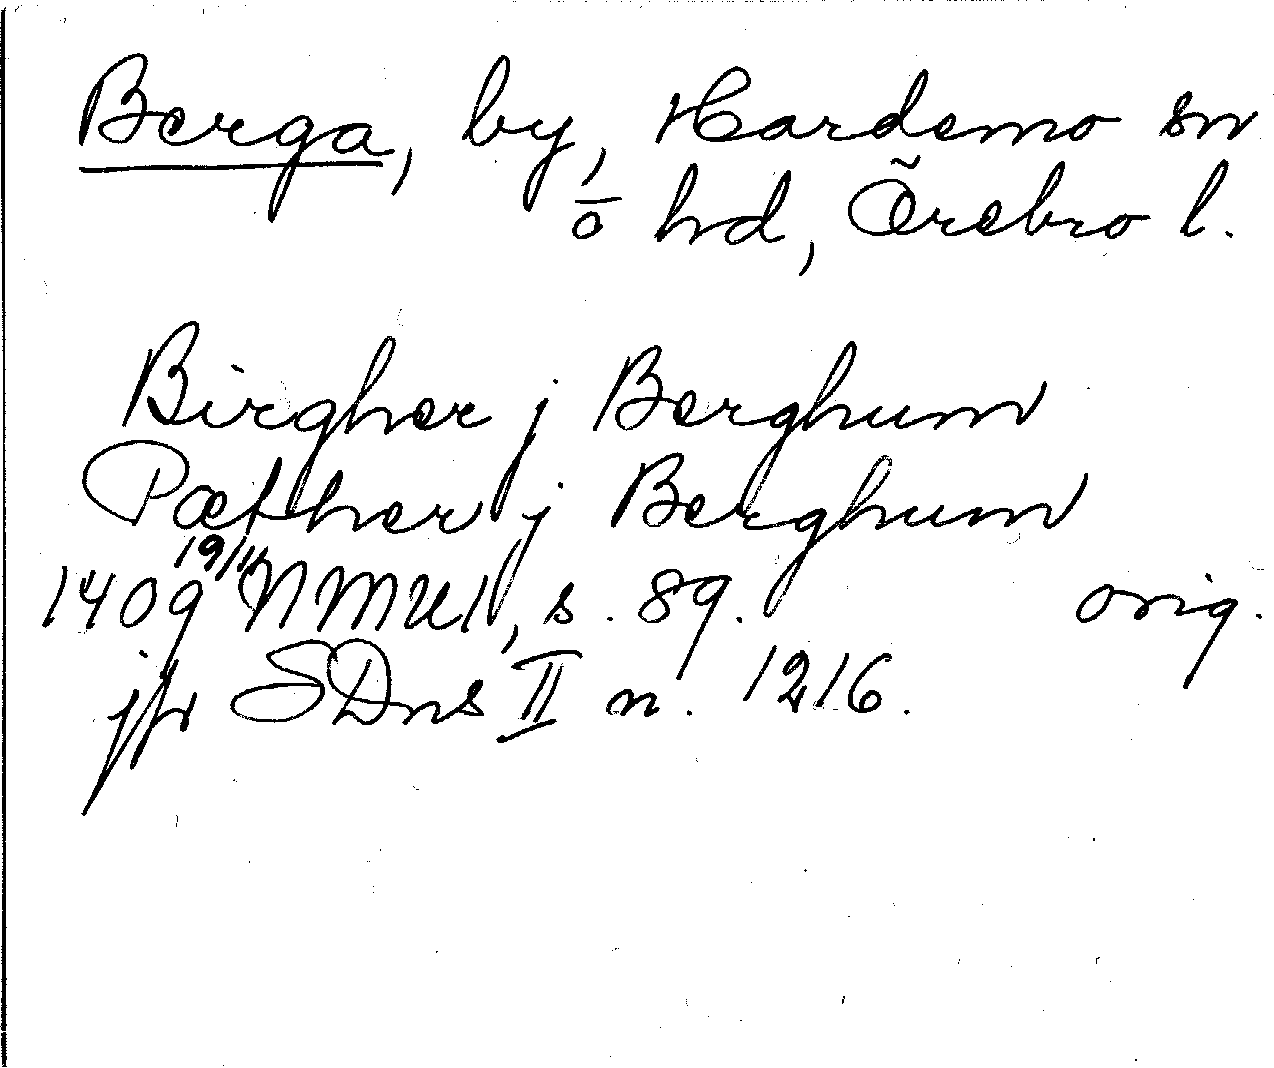 Berga, by, Hardemo sn
o hd, Örebro l.
Birgher j Berghum
Pæther j Berghum
1409 19/11 NMU1, s. 89. orig.
jfr SDns II n. 1216.